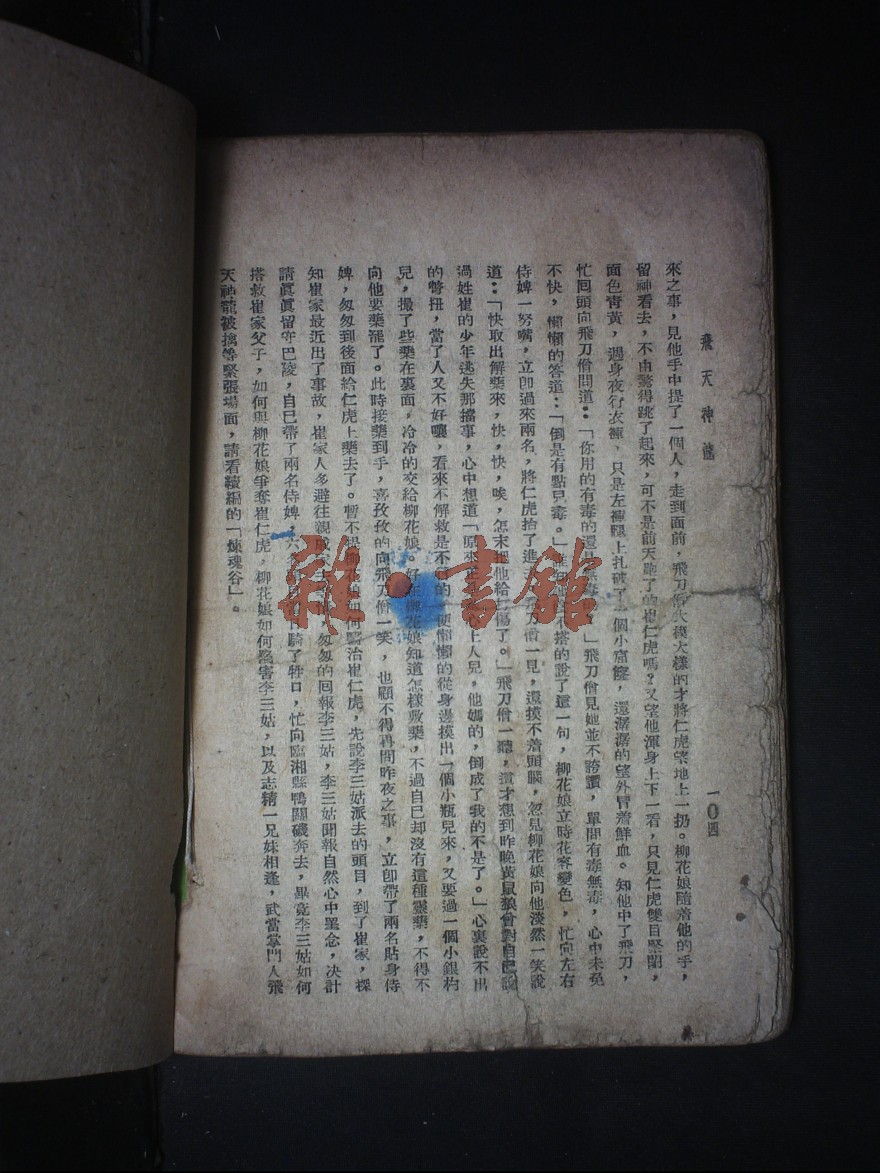 飛天神龍
一〇四
來之事，見他手中提了一個人，走到面前，飛刀僧大模大樣的才將仁虎望地上一扔。柳花娘隨着他的手，
留神看去，不由驚得跳了起來，可不是前天跑了的崔仁虎嗎？又望他渾身上下一看，只見仁虎雙目緊閉，
面色青黃，週身夜行衣褲，只是左褲腿上扎破了一個小窟窿，還潺潺的望外冒着鮮血。知他中了飛刀，
忙回頭向飛刀僧問道：「你用的有毒的還是無毒 」飛刀僧見她並不誇讚，單問有毒無毒，心中未免
不快，懶懶的答道：「倒是有點兒毒。」 不搭的說了這一句，柳花娘立時花容變色，忙向左右
侍婢一努嘴，立卽過來兩名，將仁虎抬了進 飛刀僧一見，還摸不着頭腦，忽見柳花娘向他淡然一笑說
道：「快取出解藥來，快，快，唉，怎末把他給 傷了。」飛刀僧一聽，這才想到昨晚黃鼠狼曾對自己說
過姓崔的少年逃失那擋事，心中想道「原來 上人兒，他媽的，倒成了我的不是了。」心裏說不出
的彆扭，當了人又不好嚷，看來不解救是不 的 便懶懶的從身邊摸出一個小瓶兒來，又要過一個小銀杓
兒，撮了些藥在裏面，冷冷的交給柳花娘。好在柳花娘知道怎樣敷藥，不過自己却沒有這種靈藥，不得不
向他要藥罷了。此時接藥到手，喜孜孜的向飛刀僧一笑，也顧不得再問昨夜之事，立卽帶了兩名貼身侍
婢，匆匆到後面給仁虎上藥去了。暫不提柳花娘如何醫治崔仁虎，先說李三姑派去的頭目，到了崔家，探
知崔家最近出了事故，崔家人多避往親戚家去 匆匆的回報李三姑，李三姑聞報自然心中罣念，决計
請眞眞留守巴陵，自己帶了兩名侍婢，六名 騎了牲口，忙向臨湘縣鴨關磯奔去，畢竟李三姑如何
搭救崔家父子，如何與柳花娘爭奪崔仁虎，柳花娘如何 害李三姑，以及志精一兄妹相逢，武當掌門人飛
天神龍被擒等緊張場面，請看續編的「煉魂谷」。
雜·書館